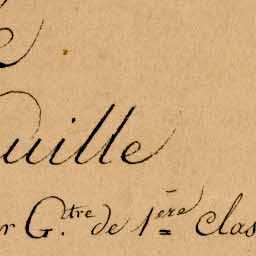 uille
r G.tre de 1ère clas